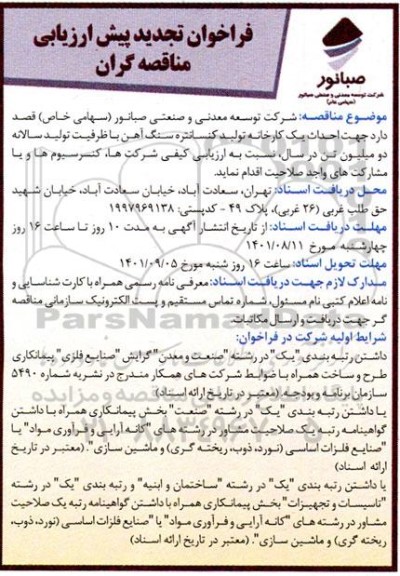 فراخوان تجدید پیش ارزیابی
مناقصه گران
صبانور
شرکت توسعه معدنی و صنعتی صبانور
(سهامی خاص)
موضوع مناقصه: شرکت توسعه معدنی و صنعتی صبانور (سهامی خاص) قصد
دارد جهت احداث یک کارخانه تولید کنسانتره سنگ آهن با ظرفیت تولید سالانه
دو میلیون تن در سال، نسبت به ارزیابی کیفی شرکت ها، کنسرسیوم ها و یا
مشارکت های واجد صلاحیت اقدام نماید.
محل دریافت اسناد: تهران، سعادت آباد، خیابان سعادت آباد، خیابان شهید
حق طلب غربی (۲۶ غربی)، پلاک ۴۹ - کدپستی: ۱۹۹۷۹۶۹۱۳۸
مهلت دریافت اسناد: از تاریخ انتشار آگهی به مدت ۱۰ روز تا ساعت ۱۶ روز
چهارشنبه مورخ ۱۴۰۱/۰۸/۱۱
مهلت تحویل اسناد: ساعت ۱۶ روز شنبه مورخ ۱۴۰۱/۰۹/۰۵
مدارک لازم جهت دریافت اسناد: معرفی نامه رسمی همراه با کارت شناسایی و
نامه اعلام کتبی نام مسئول، شماره تماس مستقیم و پست الکترونیک سازمانی مناقصه
گر جهت دریافت و ارسال مکاتبات.
شرایط اولیه شرکت در فراخوان:
داشتن رتبه بندی "یک" در رشته "صنعت و معدن" گرایش "صنایع فلزی" پیمانکاری
طرح و ساخت همراه با ضوابط شرکت های همکار مندرج در نشریه شماره ۵۴۹۰
سازمان برنامه و بودجه (معتبر در تاریخ ارائه اسناد)
یا داشتن رتبه بندی "یک" در رشته "صنعت" بخش پیمانکاری همراه با داشتن
گواهینامه رتبه یک صلاحیت مشاور در رشته های "کانه آرایی و فرآوری مواد" یا
"صنایع فلزات اساسی (نورد، ذوب، ریخته گری) و ماشین سازی". (معتبر در تاریخ
ارائه اسناد)
یا داشتن رتبه بندی "یک" در رشته "ساختمان و ابنیه" و رتبه بندی "یک" در رشته
"تاسیسات و تجهیزات" بخش پیمانکاری همراه با داشتن گواهینامه رتبه یک صلاحیت
مشاور در رشته های "کانه آرایی و فرآوری مواد" یا "صنایع فلزات اساسی (نورد، ذوب،
ریخته گری) و ماشین سازی". (معتبر در تاریخ ارائه اسناد)
ParsNamadData